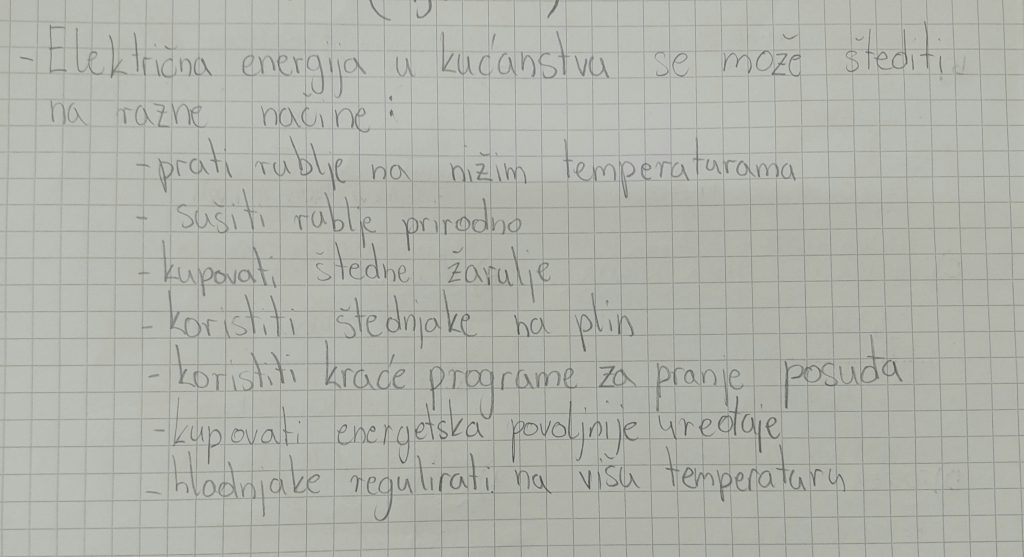 - Električna energija u kućanstvu se može štediti
na razne načine:
- prati rublje na nižim temperaturama
- sušiti rublje prirodno
- kupovati štedne žarulje
- koristiti štednjake na plin
- koristiti kraće programe za pranje posuđa
- kupovati energetska povoljnije uređaje
- hladnjake regulirati na višu temperaturu